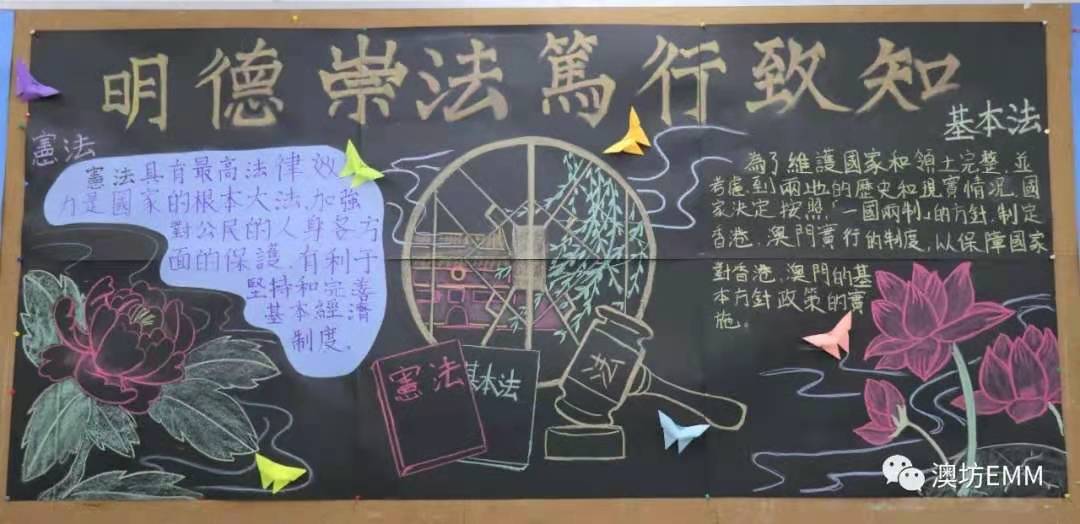 明德崇法篤行致知
憲法
憲法具有最高法律效
力是國家的根本大法.加強
對公民的人身各方
面的保護.有利于
堅持和完善
基本經濟
制度.
基本法
為了維護國家和領土完整,並
考慮到兩地的歷史和現實情況,國
家決定按照「一國兩制」的方針,制定
香港,澳門實行的制度,以保障國家
對香港,澳門的基
本方針政策的實
施。
憲法
基本法
法
澳坊EMM